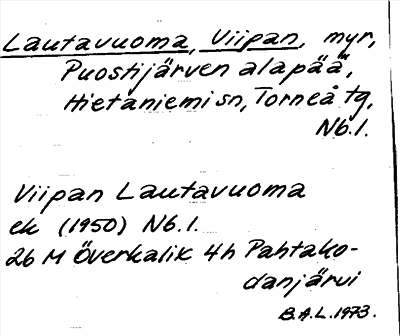 Lautavuoma, Viipan, myr,
Puostijärven alapää,
Hietaniemi sn, Torneå tg,
Nb.l.
Viipan Lautavuoma
ek (1950) Nb.l.
26 M Överkalik 4h Pahtako-
danjärvi
B.A.L. 1973.